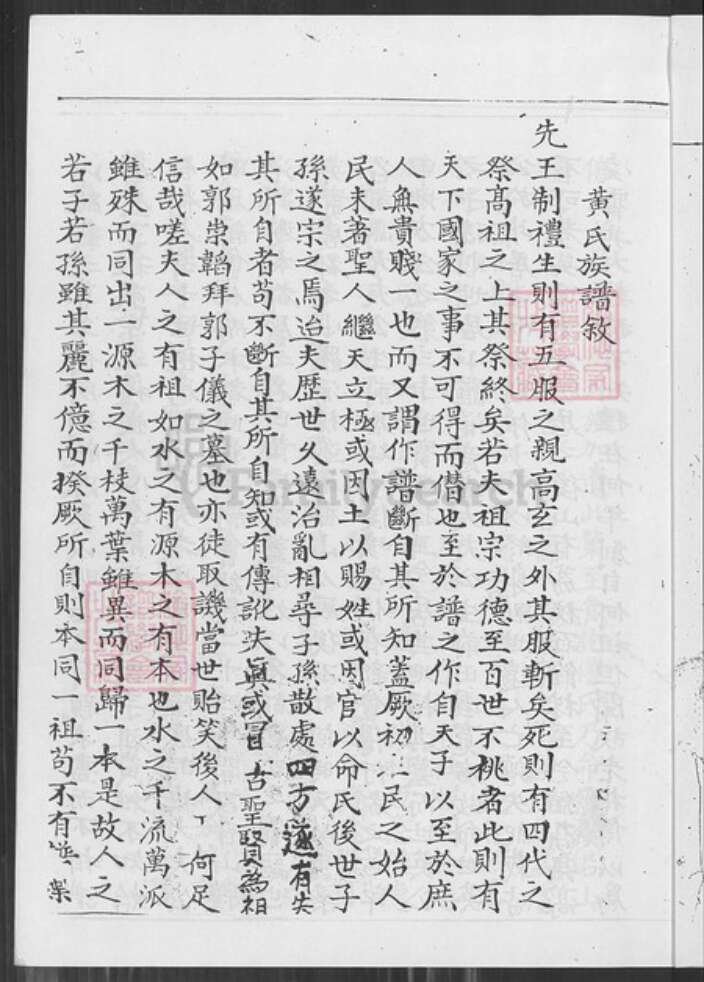 黃氏族譜敘
先王制禮生則有五服之親高玄之外其服斬矣死則有四代之
祭髙祖之上其祭終矣若夫祖宗功德至百世不祧者此則有
天下國家之事不可得而僭也至於譜之作自天子以至於庶
人無貴賤一也而又謂作譜斷自其所知蓋厥初民之始人
民未著聖人繼天立極或因土以賜姓或因官以命氏後世子
孫遂宗之焉迨夫歷世久遠治亂相尋子孫散處四方遂有失
其所自者苟不斷自其所自知或有傳訛失眞或冒古聖賢為祖
如郭崇韜拜郭子儀之墓也亦徒取譏當世貽笑後人何足
信哉嗟夫人之有祖如水之有源木之有本也水之千流萬派
雖殊而同出一源木之千枝萬葉雖異而同歸一本是故人之
若子若孫雖其麗不億而揆厥所自則本同一祖苟不有
FamilySearch